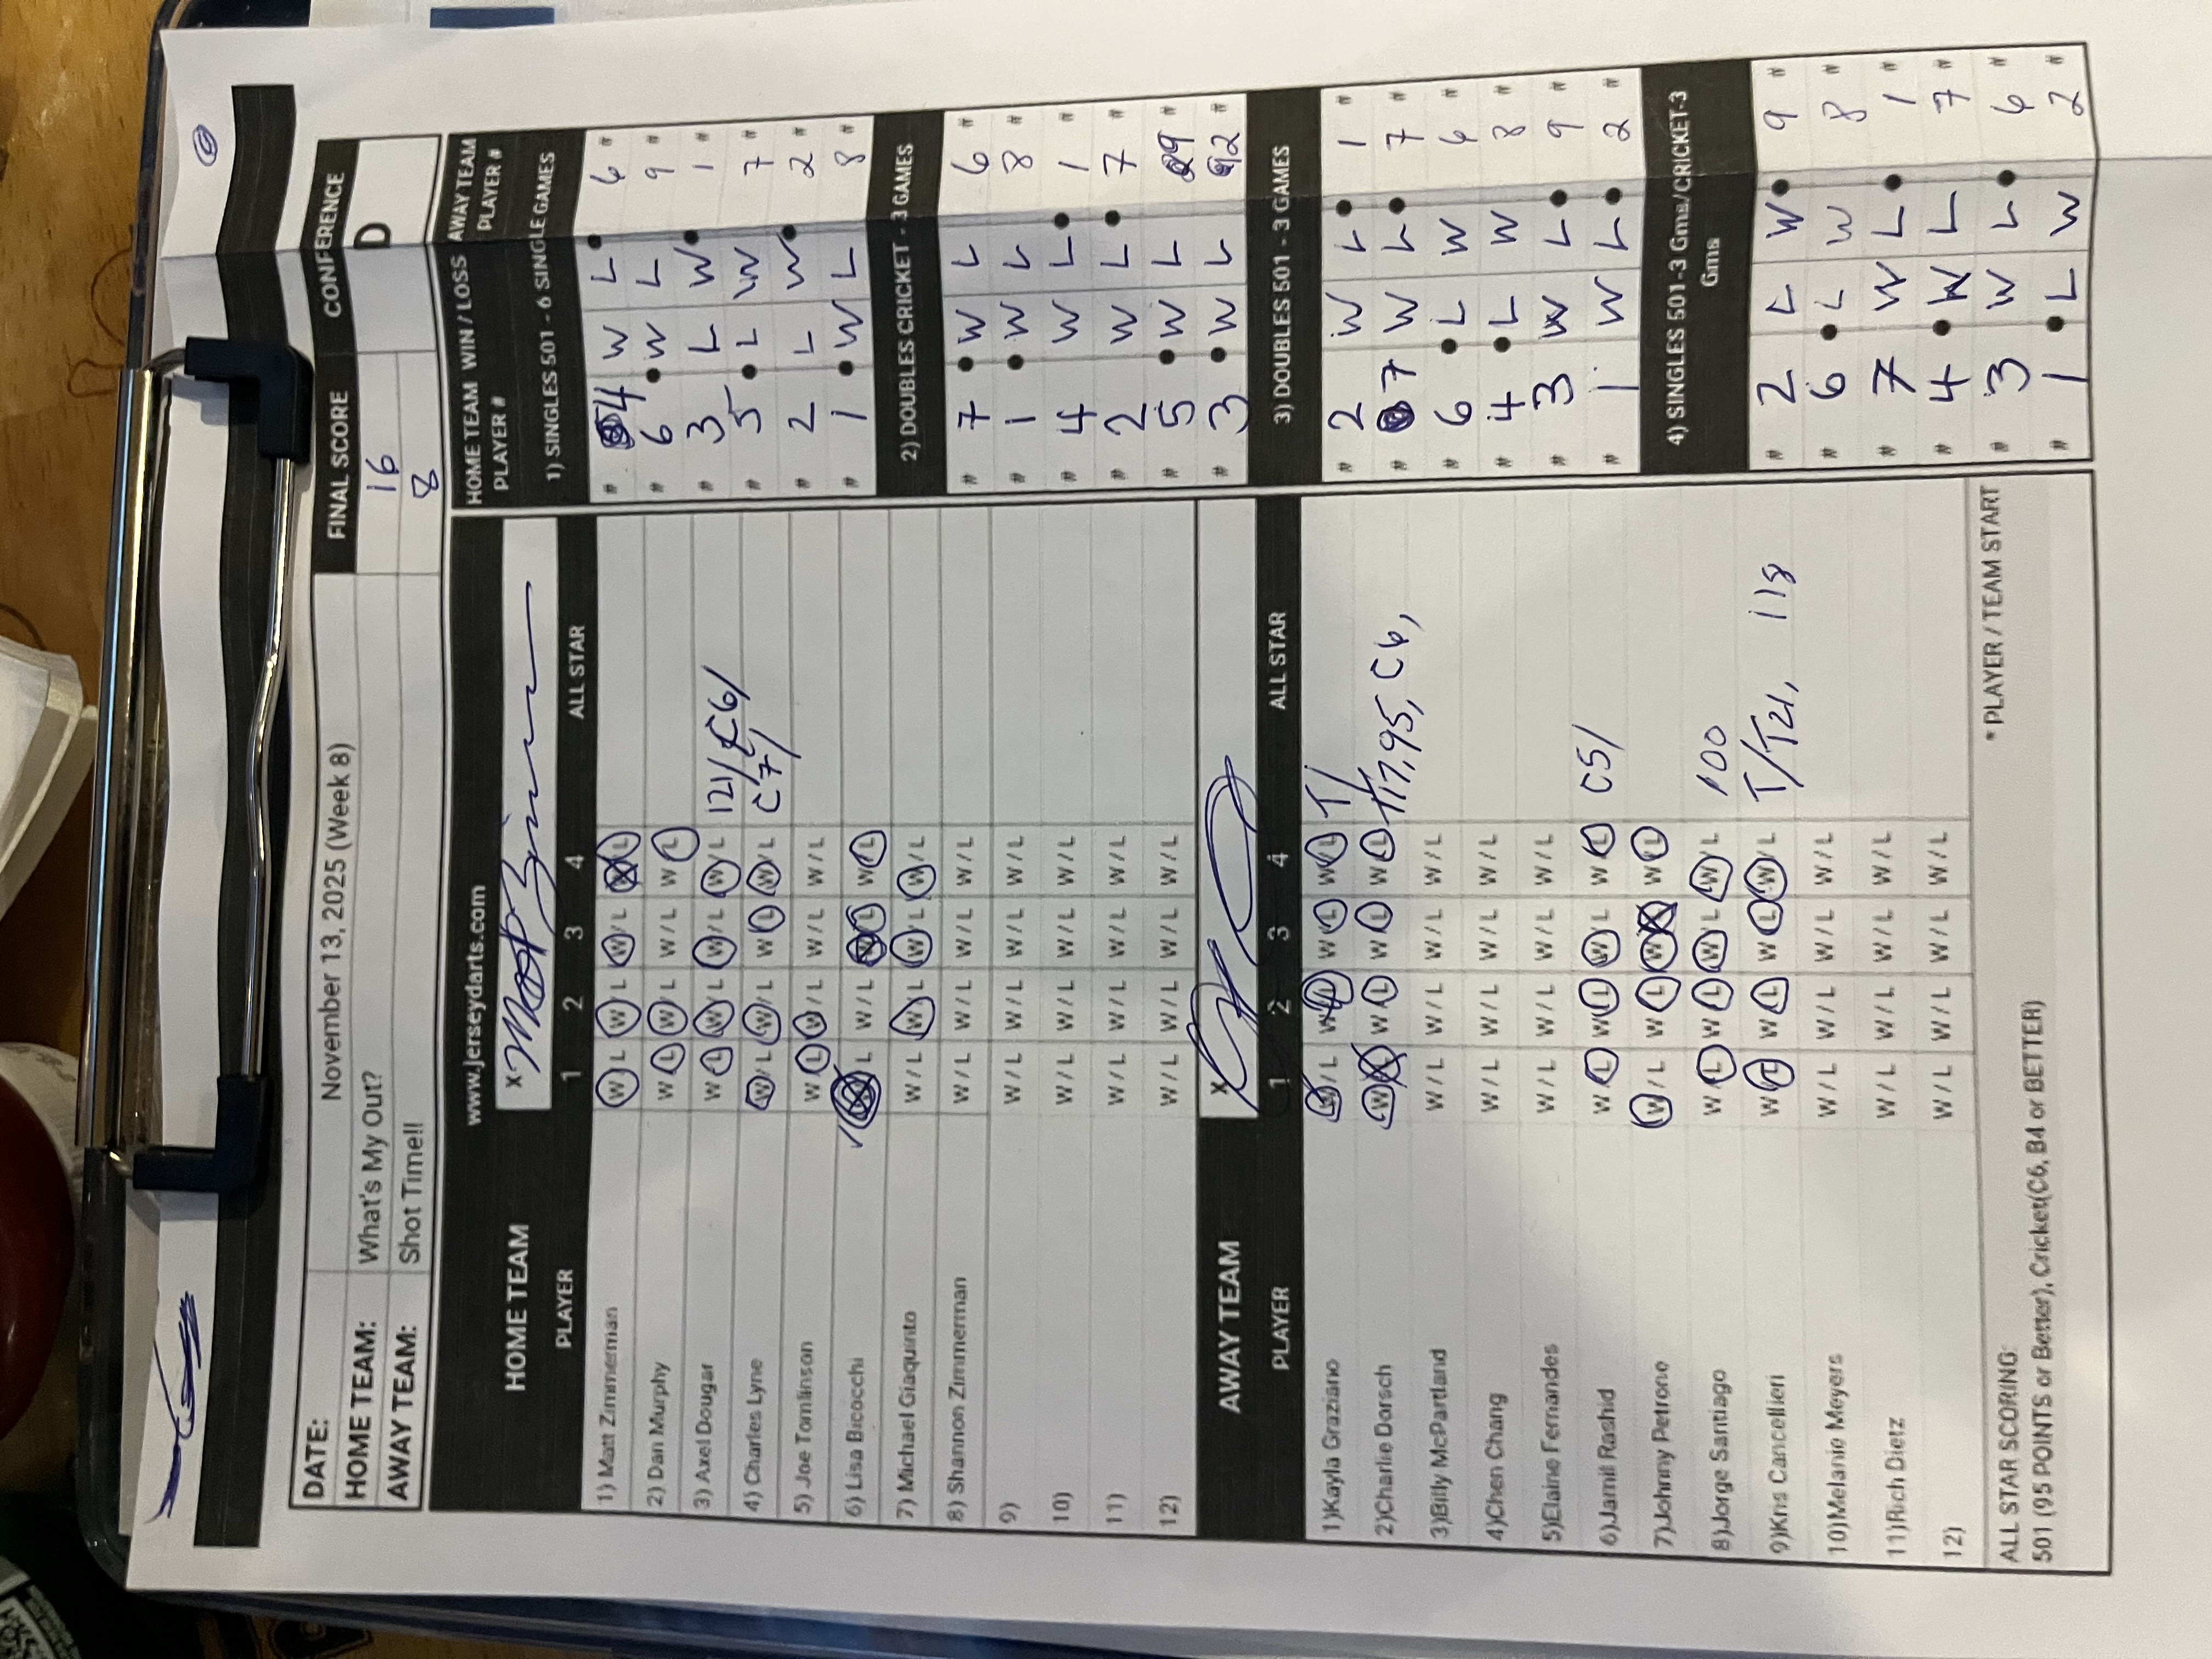 DATE: November 13, 2025 (Week 8) FINAL SCORE CONFERENCE
HOME TEAM: What's My Out? 16 D
AWAY TEAM: Shot Time!! 8
www.jerseydarts.com
HOME TEAM X
PLAYER 1 2 3 4 ALL STAR
1) Matt Zimmerman W / L W / L W / L W / L
2) Dan Murphy W / L W / L W / L W / L
3) Axel Dougar W / L W / L W / L W / L 121/ C6/
4) Charles Lyne W / L W / L W / L W / L C7/
5) Joe Tomlinson W / L W / L W / L W / L
6) Lisa Bicocchi W / L W / L W / L W / L
7) Michael Giaquinto W / L W / L W / L W / L
8) Shannon Zimmerman W / L W / L W / L W / L
9) W / L W / L W / L W / L
10) W / L W / L W / L W / L
11) W / L W / L W / L W / L
12) W / L W / L W / L W / L
AWAY TEAM X
PLAYER 1 2 3 4 ALL STAR
1)Kayla Graziano W / L W / L W / L W / L T/
2)Charlie Dorsch W / L W / L W / L W / L 117, 95, C6,
3)Billy McPartland W / L W / L W / L W / L
4)Chen Chang W / L W / L W / L W / L
5)Elaine Fernandes W / L W / L W / L W / L
6)Jamil Rashid W / L W / L W / L W / L C5/
7)Johnny Petrone W / L W / L W / L W / L
8)Jorge Santiago W / L W / L W / L W / L 100
9)Kris Cancellieri W / L W / L W / L W / L T/T21, 118
10)Melanie Meyers W / L W / L W / L W / L
11)Rich Dietz W / L W / L W / L W / L
12) W / L W / L W / L W / L
ALL STAR SCORING: * PLAYER / TEAM START
501 (95 POINTS or Better), Cricket(C6, B4 or BETTER)
HOME TEAM WIN / LOSS AWAY TEAM
PLAYER # PLAYER #
1) SINGLES 501 - 6 SINGLE GAMES
# 4 W L 6 #
# 6 W L 9 #
# 3 L W 1 #
# 5 L W 7 #
# 2 L W 2 #
# 1 W L 8 #
2) DOUBLES CRICKET - 3 GAMES
# 7 W L 6 #
# 1 W L 8 #
# 4 W L 1 #
# 2 W L 7 #
# 5 W L 9 #
# 3 W L 2 #
3) DOUBLES 501 - 3 GAMES
# 2 W L 1 #
# 7 W L 7 #
# 6 L W 6 #
# 4 L W 8 #
# 3 W L 9 #
# 1 W L 2 #
4) SINGLES 501-3 Gms/CRICKET-3
Gms
# 2 L W 9 #
# 6 L W 8 #
# 7 W L 1 #
# 4 W L 7 #
# 3 W L 6 #
# 1 L W 2 #